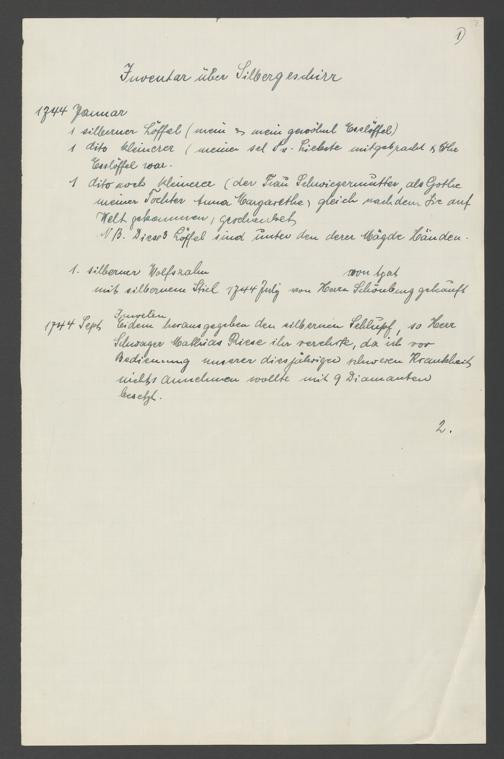 1)
Inventar über Silbergeschirr
1744 Januar
1 silberner Löffel (mein & mein gewöhnl Esslöffel)
1 dito kleinerer (meiner sel Fr. Liebste mitgebracht & Ihr
Esslöffel war.
1 dito noch kleinerer (der Frau Schwiegermutter, als Gothe
meiner Tochter Anna Margarethe, gleich nachdem Sie auf
Welt gekommen, geschenket,
NB. Diese 3 Löffel sind unter den derer Mägde Händen.
1. silberner Wolfszahn
mit silbernem Stiel 1744 July von Herrn Schönburg gekauft
Juwelen
1744 Sept Eidem herausgegeben den silbernen Schlupf, so Herr
Schwager Mathias Riese ihr verehrte, da ich vor
Bedienung unserer diesjährigen schweren Krankheit
nichts annehmen wollte mit 9 Diamanten
besetzt.
2.